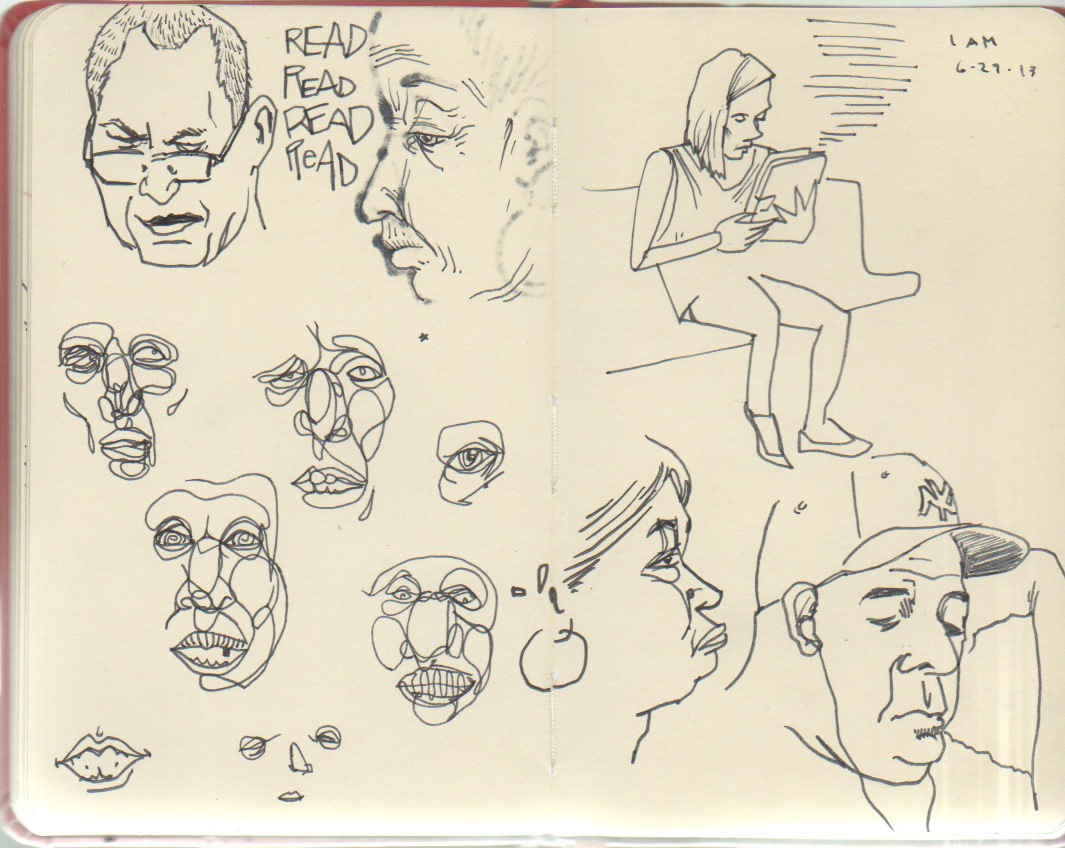 READ
READ
READ
READ
1 AM
6-29-13
NY